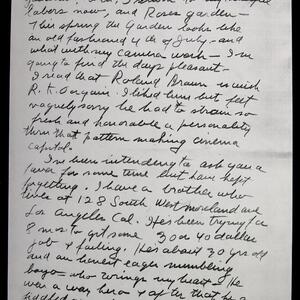 labors now, and Roses garden—
This spring the garden looks like
an old fashioned 4th of July—and
what with my camera work—I'm
going to find the days pleasant—
I read that Roland Brown is with
R.K.O. again. I liked him but felt
vaguely sorry he had to strain so
fresh and honorable a personality
thru that pattern making cinema
capitol.
I've been intending to ask you a
favor for some time but have kept
forgetting. I have a brother who
lives at 128 South Westmoreland ave
Los Angeles Cal. He's been trying for
8 mos to get some 30 or 40 dollar
job & failing. He's about 30 yrs old
and an honest eager mumbling
boy— who wrings my heart. He
was a war hero & after that he